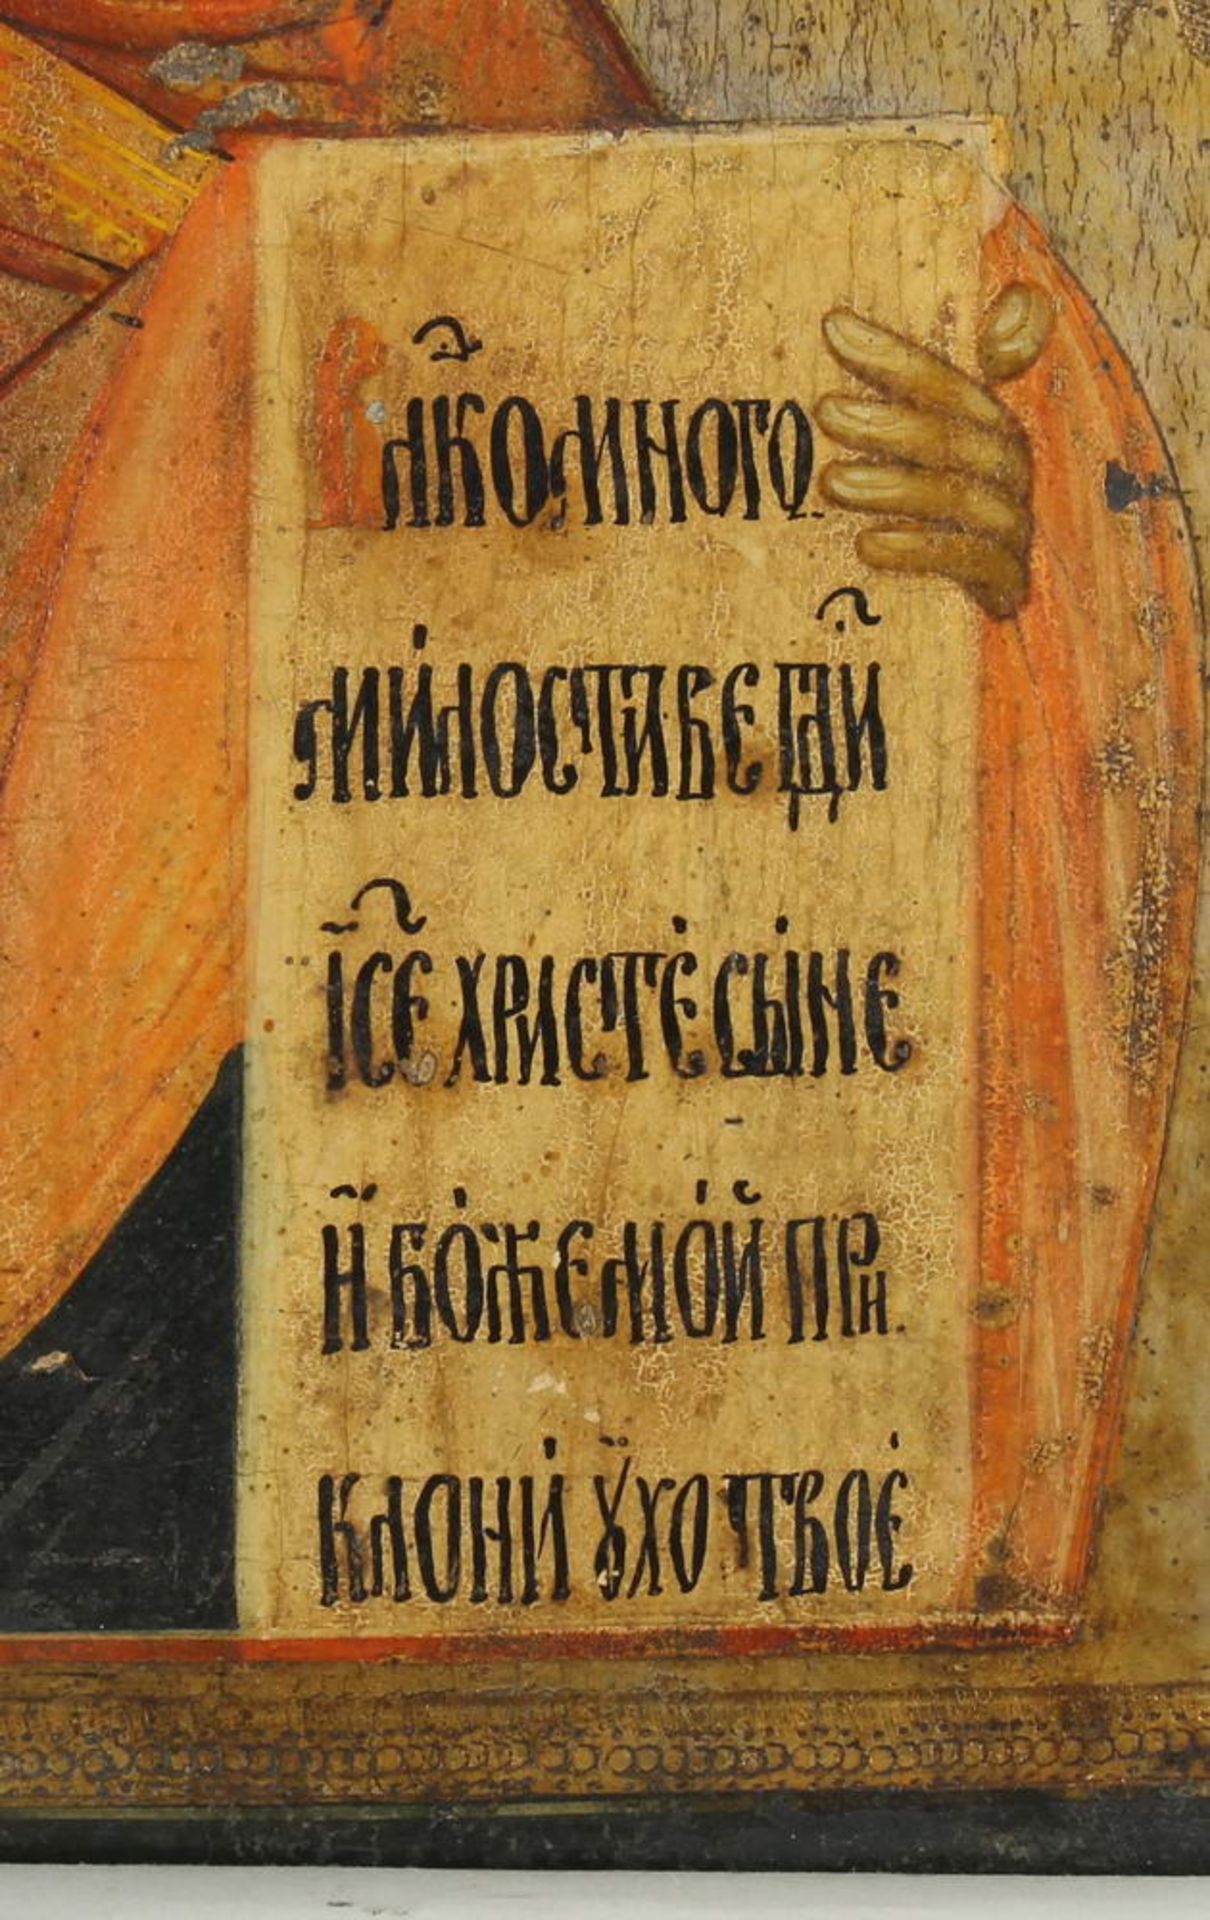 Влⷣко много
ми́лостиве гдⷭ҇и
і҆се҃ христе́ сы́не
и҆ бо́же мо́й при
клони́ ᲂу҆хо твое́